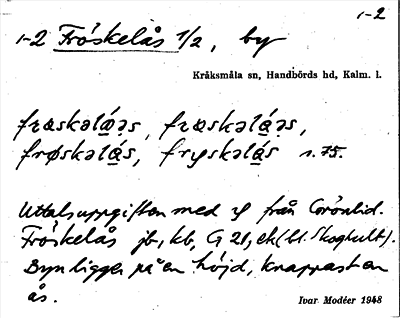 1-2
1-2 Fröskelås 1/2, by
Kråksmåla sn, Handbörds hd, Kalm. l.
s. 75.
Uttalsuppgiften med från Grönlid.
Fröskelås jb, kb, G 21, ek (bl. Skoghult).
Byn ligger på en höjd, knappast en
ås.
Ivar Modéer 1948